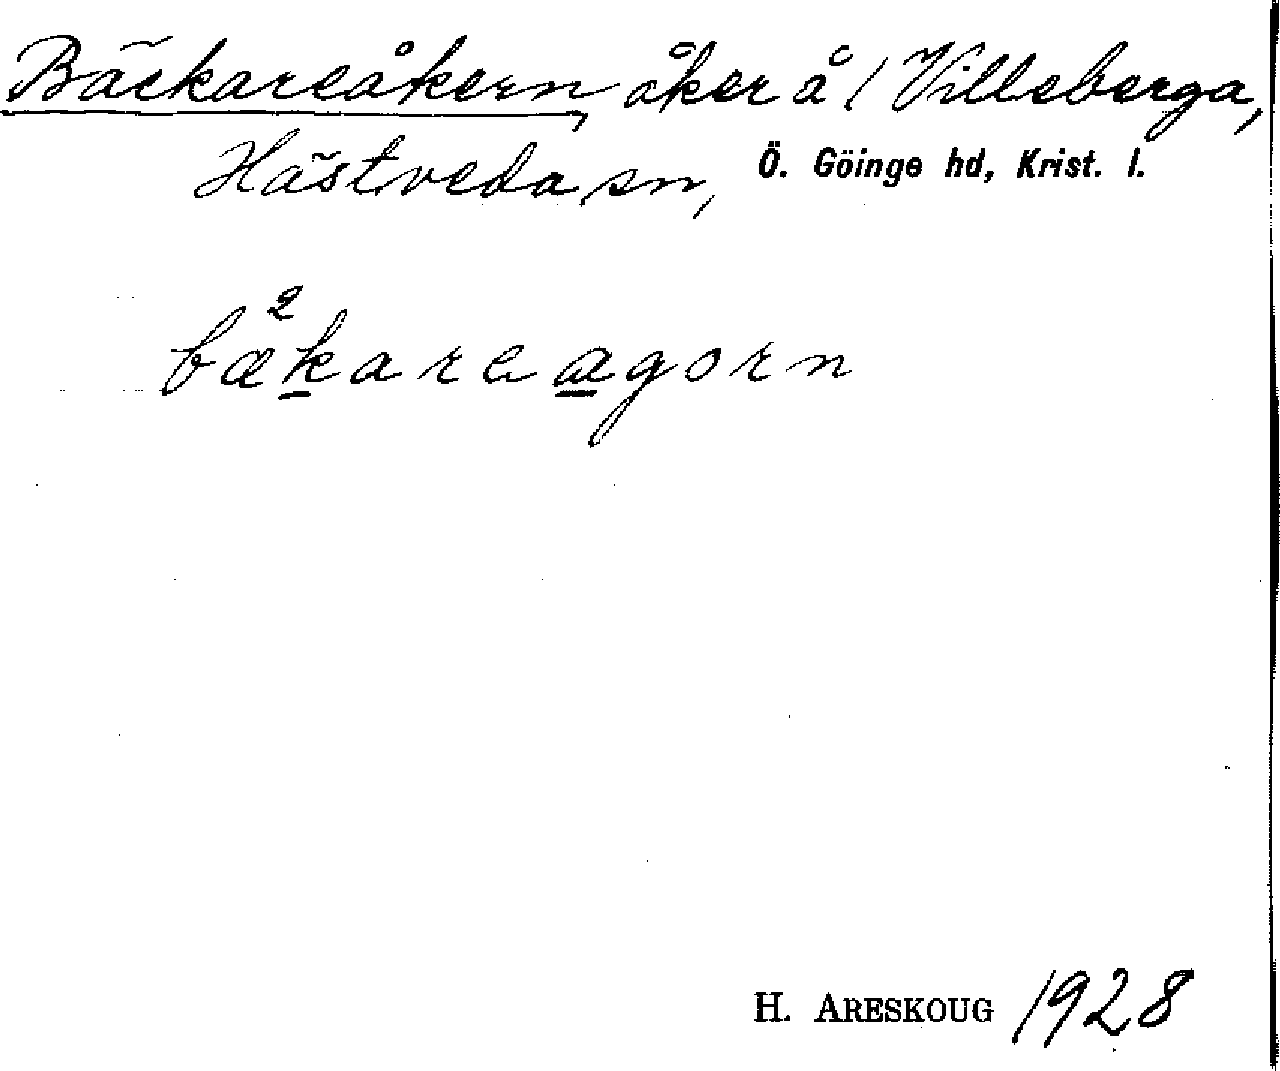 Bäckareåkern, åker å / Villeberga,
Hästveda sn, Ö. Göinge hd, Krist. l.
2
bækareagorn
H. ARESKOUG 1928